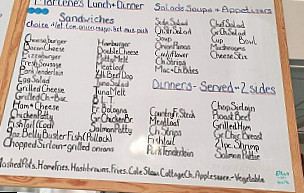 Marlene's Lunch + Dinner
Sandwiches
choice = let. tom. onion, mayo. ket. mus. pick
Cheeseburger
Bacon Cheese
Pizzaburger
Fresh Sausage
Pork Tenderloin
Egg Salad
Grilled Cheese
Grilled Ch-Bac
Ham + Cheese
Chicken Patty
Fish Tail Cod
Hamburger
Double Cheese
Patty Melt
Meatloaf
1/4 lb Beef Dog
Tuna Salad
Tuna Melt
B L T
Fr. Bologna
Gr Chicken Br
Salmon Patty
9oz Belly Buster Fish (Pollock)
Chopped Sirloin - grilled onions
Salads Soups + Appetizers
Side Salad
Soup
Onion Rings
Cauliflower
Ch Strips
Mac + Ch Bites
Chef Salad
Gr Ch Salad
Cup Bowl
Mushrooms
Cheese Stix
Dinners - Served - 2 sides
Country Fr. Steak
Meatloaf
Ch Strips
Fishtail
Pork Tenderloin
Chop Sirloin
Roast Beef
Grilled Ham
Gr Chic Breast
Shrimp
Salmon Pattie
Mashed Pots, Home Fries, Hashbrowns, Fries, Cole Slaw, Cottage Ch, Applesauce - Vegetable